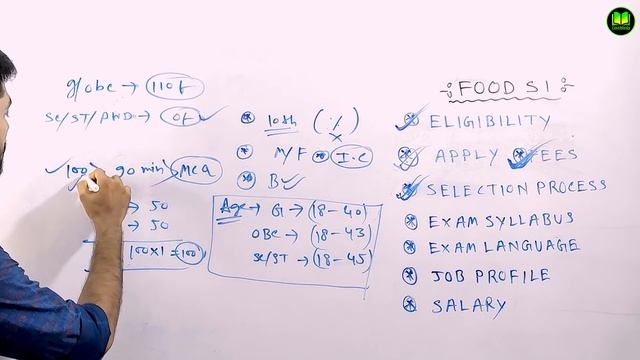 G/OBC → 110₹
SC/ST/PWD → 0₹
100 90 min MCQ
→ 50
→ 50
100x1 = 100
10th (%)
M/F I.C
B
Age → G → (18-40)
OBC → (18-43)
SC/ST → (18-45)
FOOD SI
ELIGIBILITY
APPLY FEES
SELECTION PROCESS
EXAM SYLLABUS
EXAM LANGUAGE
JOB PROFILE
SALARY